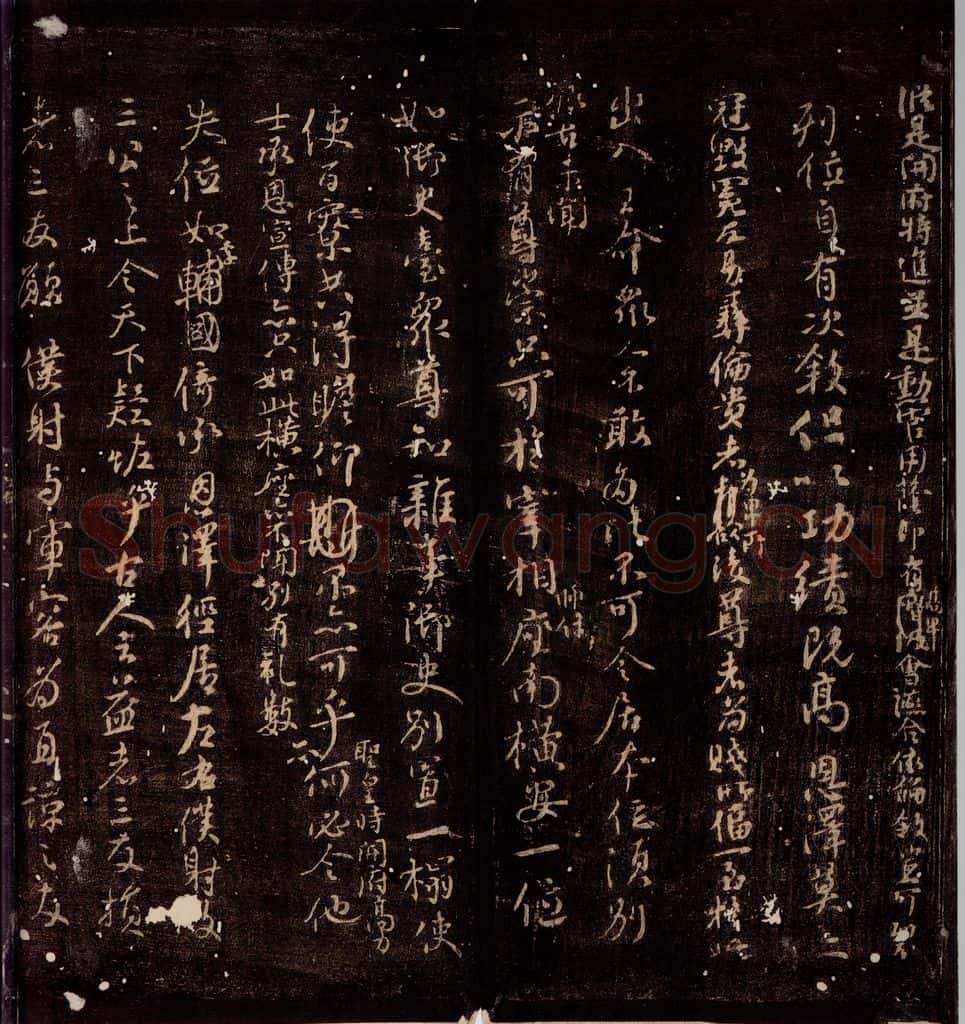 縱是開府特進並是勳官用蔭即有高卑會讌合依倫敘豈可裂
列位自有次敘但以功績既高恩澤莫二
冠毀冕反易彝倫貴者為卑所凌尊者為賤所偪一至於此
出入王命眾人不敢為比不可令居本位須別
振古未聞
示有尊崇只可於宰相師保座南橫安一位
如御史臺眾尊知雜事御史別置一榻使
使百寮共得瞻仰不亦可乎
聖皇時開府高力
士承恩宣傳亦只如此橫座亦不聞別有禮數
亦何必令他
失位如李輔國倚承恩澤徑居左右僕射及
三公之上令天下疑怪乎古人云益者三友損
者三友願僕射與軍容為直諒之友
Shufawang.CN